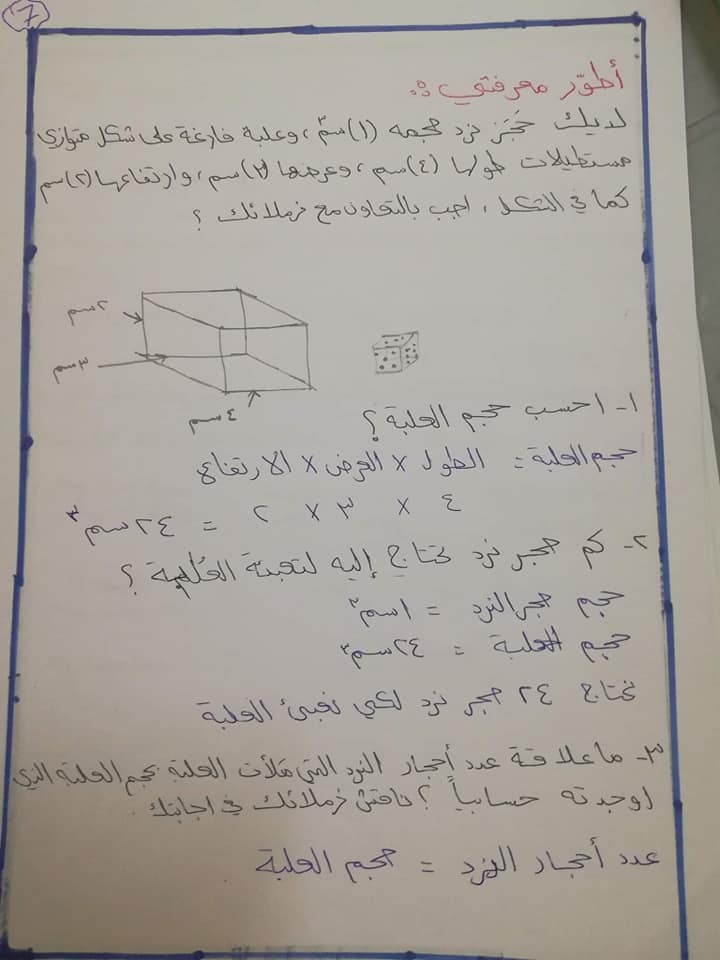 ٧
أطوّر معرفتي :
لديك حَجَر نرد حجمه (١) سم٣، وعلبة فارغة على شكل متوازي
مستطيلات طولها (٤) سم، وعرضها (٣) سم، وارتفاعها (٢) سم
كما في الشكل، اجب بالتعاون مع زملائك ؟
٢ سم
٣ سم
٤ سم
١- احسب حجم العلبة ؟
حجم العلبة = الطول × العرض × الارتفاع
٤ × ٣ × ٢ = ٢٤ سم٣
٢- كم حجر نرد تحتاج إليه لتعبئة العُلبة ؟
حجم حجر النرد = ١ سم٣
حجم العلبة = ٢٤ سم٣
نحتاج ٢٤ حجر نرد لكي نعبئ العلبة
٣- ما علاقة عدد أحجار النرد التي ملأت العلبة بحجم العلبة الذي
أوجدته حسابياً ؟ ناقش زملائك في اجابتك.
عدد أحجار النرد = حجم العلبة